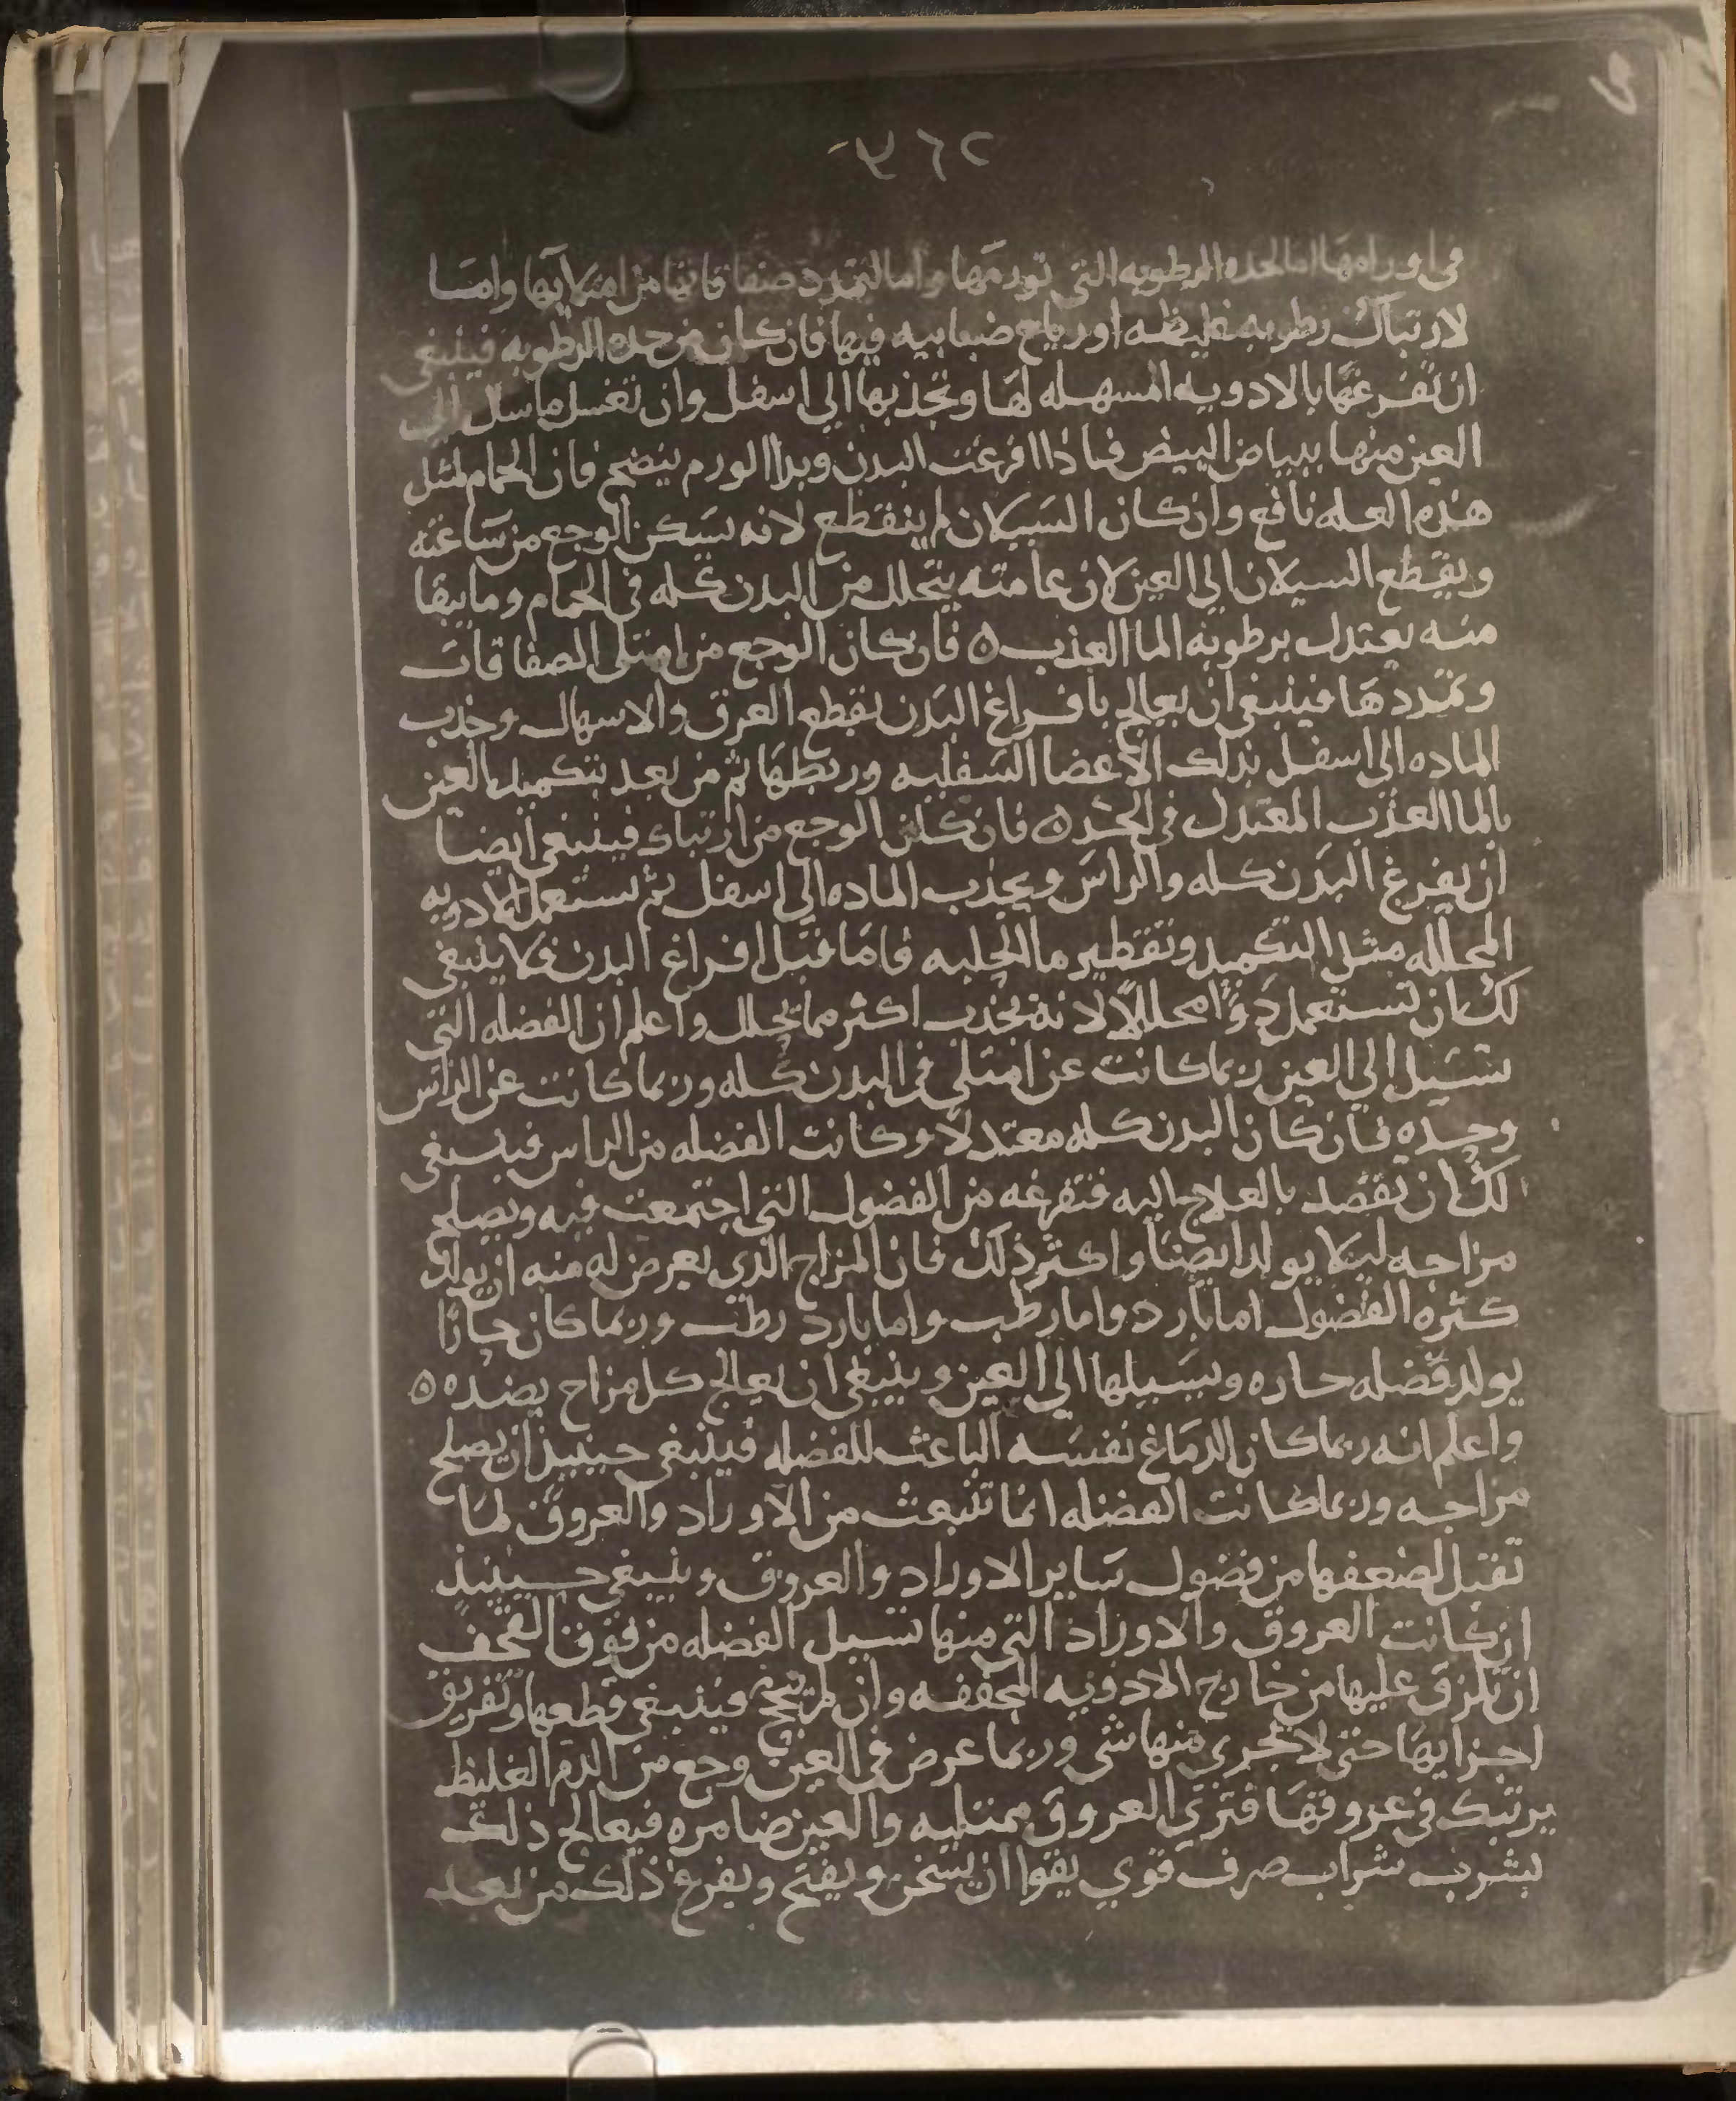 في اورامها اما لحده الرطوبه التي تورمها واما لتمدد صفاقاتها من امتلايها واما
لارتباك رطوبه غليظه او رياح ضبابيه فيها فان كان من حده الرطوبه فينبغي
ان تفرغها بالادويه المسهله لها وتجذبها الي اسفل وان تغسل ما سال الي
العين منها ببياض البيض فاذا افرغت البدن وبدا الورم ينضج فان الحمام لمثل
هذه العله نافع وان كان السيلان لم ينقطع لانه يسكن الوجع من ساعته
ويقطع السيلان الي العين لان عامته يتحلل من البدن كله في الحمام وما يبقا
منه يعتدل برطوبه الما العذب ه فان كان الوجع من امتلي الصفاقات
وتمددها فينبغي ان يعالج بافراغ البدن بقطع العرق والاسهال وجذب
الماده الي اسفل بدلك الاعضا السفليه وربطها ثم من بعد بتكميد العين
بالما العذب المعتدل في الحر ه فان كان الوجع من ارتباك فينبغي ايضا
ان يفرغ البدن كله والراس ويجذب الماده الي اسفل ثم تستعمل الادويه
المحلله مثل التكميد وتقطير ما الحلبه فاما قبل افراغ البدن فلا ينبغي
لك ان تستعمل دوا محللا لانه يجذب اكثر مما يحلل واعلم ان الفضله التي
تسيل الي العين ربما كانت عن امتلي في البدن كله وربما كانت عن الراس
وحده فان كان البدن كله معتدلا وكانت الفضله من الراس فينبغي
لك ان تقصد بالعلاج اليه فتفرغه من الفضول التي اجتمعت فيه ويصلح
مزاجه ليلا يولد ايضا واكثر ذلك فان المزاج الذي يعرض له منه ان يولد
كثره الفضول اما بارد واما رطب واما بارد رطب وربما كان حارا
يولد فضله حاره ويسيلها الي العين وينبغي ان يعالج كل مزاج بضده ه
واعلم انه ربما كان الدماغ نفسه الباعث للفضله فينبغي حينيذ ان يصلح
مزاجه وربما كانت الفضله انما تنبعث من الاوراد والعروق لما
تقبل لضعفها من فضول ساير الاوراد والعروق وينبغي حينيذ
ان كانت العروق والاوراد التي منها تسيل الفضله من فوق القحف
ان تلزق عليها من خارج الادويه المجففه وان لم تنجح فينبغي قطعها وتفريق
اجزايها حتي لا يجري منها شي وربما عرض في العين وجع من الدم الغليظ
يرتبك في عروقها فتري العروق ممتليه والعين ضامره فيعالج ذلك
بشرب شراب صرف قوي يقوا ان يسخن ويفتح ويفرغ ذلك من بعد